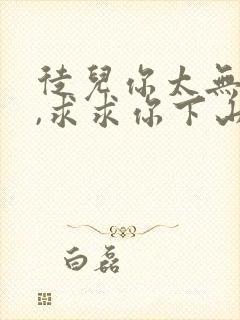 徒兒你太無
,求求你下山
白磊